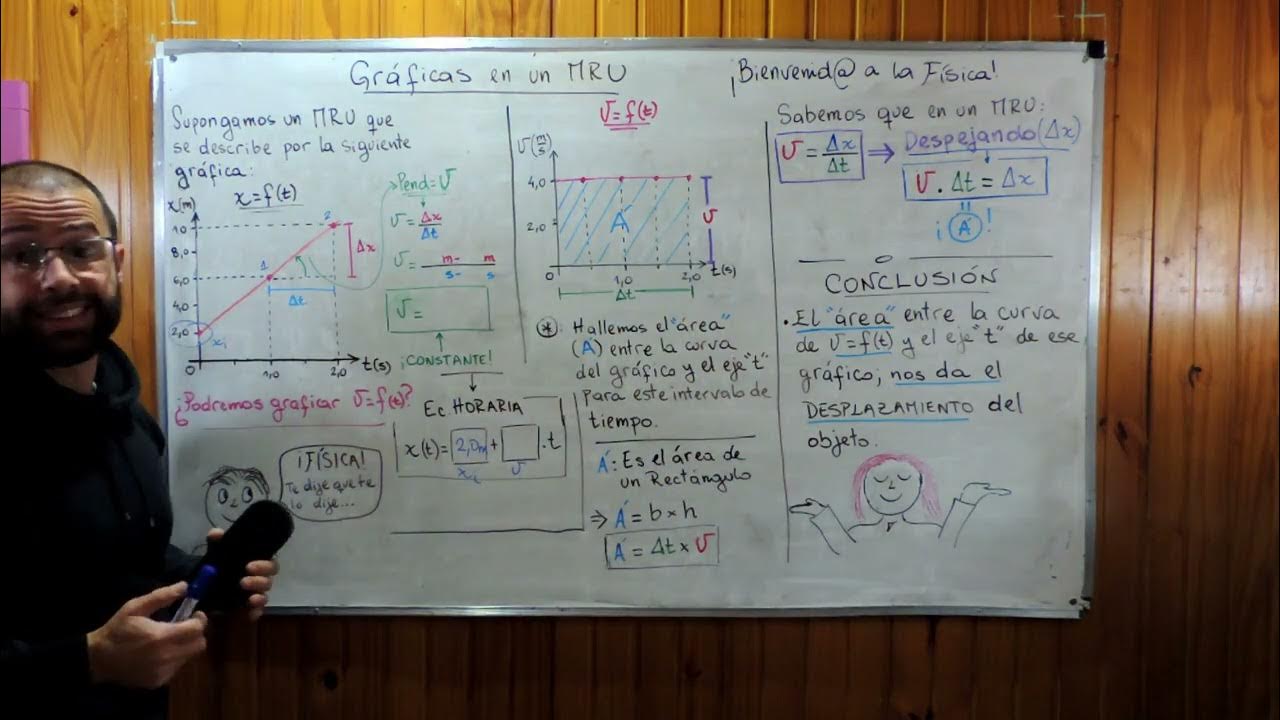 Gráficas en un MRU
¡Bienvenid@ a la Física!
Supongamos un MRU que
se describe por la siguiente
gráfica:
x = f(t)
x(m)
10
8,0
6,0
4,0
2,0
0
1,0
2,0
t(s)
xi
1
2
Δt
Δx
Pend = v
v = Δx/Δt
v = m- m / s- s
v =
¡CONSTANTE!
¿Podremos graficar v = f(t)?
Ec. HORARIA
x(t) = 2,0m + . t
xi
v
¡FÍSICA!
Te dije que te
lo dije...
v = f(t)
v(m/s)
4,0
2,0
0
1,0
2,0
t(s)
A
v
Δt
*: Hallemos el "área"
(A) entre la curva
del gráfico y el eje "t"
para este intervalo de
tiempo.
A: Es el área de
un Rectángulo
⇒ A = b × h
A = Δt × v
Sabemos que en un MRU:
v = Δx/Δt ⇒ Despejando (Δx)
v . Δt = Δx
=
¡A!
CONCLUSIÓN
. El "área" entre la curva
de v = f(t) y el eje "t" de ese
gráfico; nos da el
DESPLAZAMIENTO del
objeto.